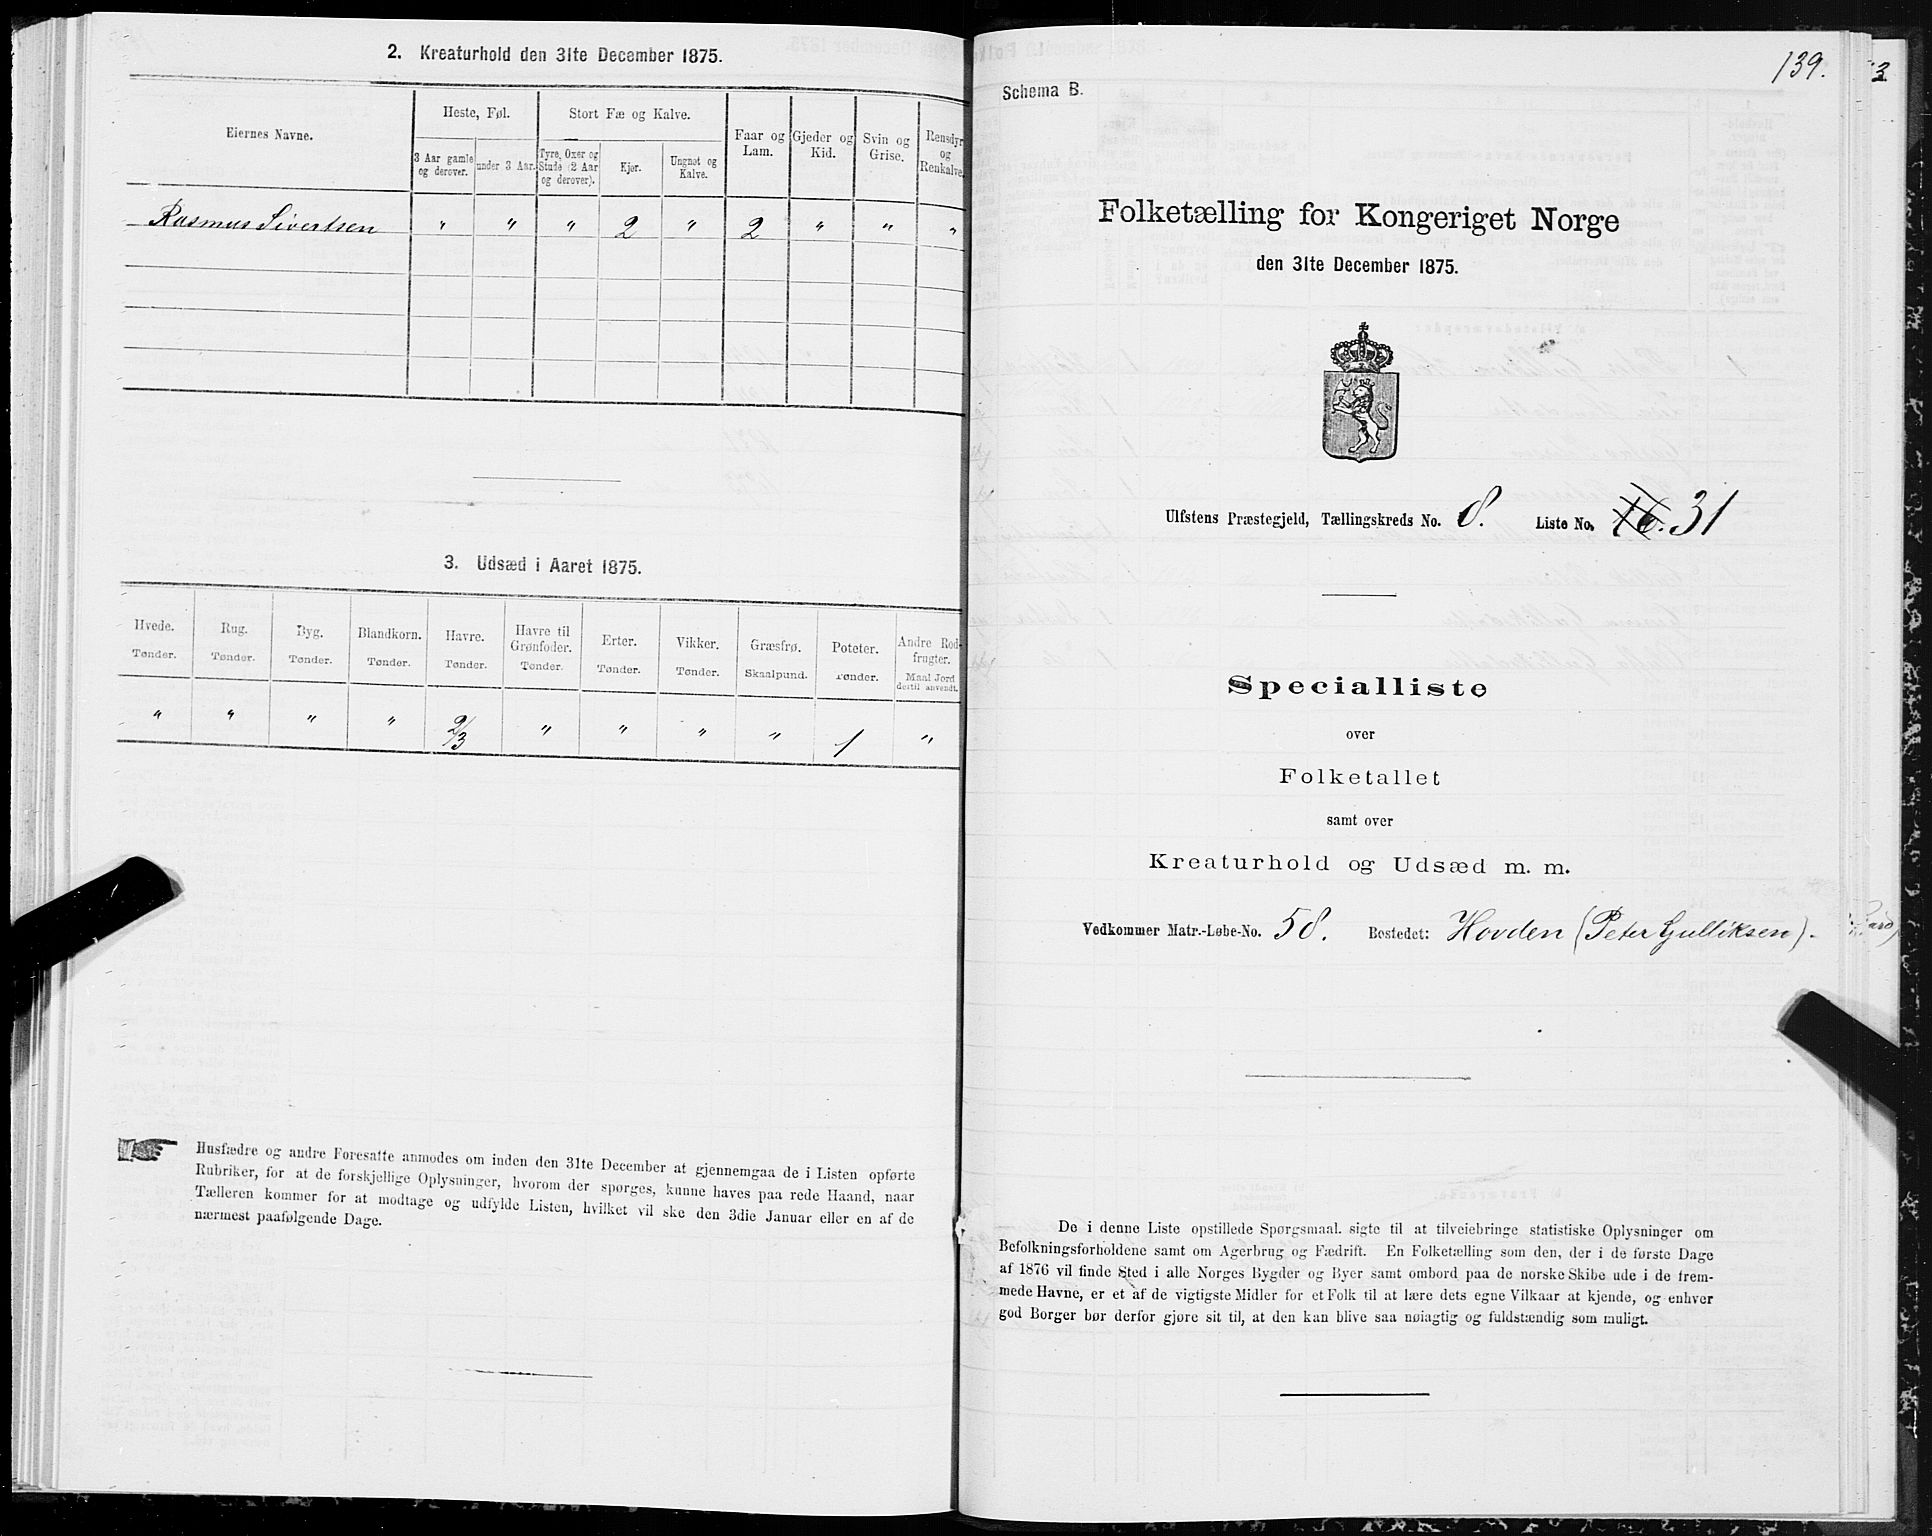 2. Kreaturhold den 31te December 1875.
Eiernes Navne.
Heste, Føl.
Stort Fæ og Kalve.
Faar og Lam.
Gjeder og Kid.
Svin og Grise.
Rensdyr og Renkalve.
3 Aar gamle og derover.
under 3 Aar.
Tyre, Oxer og Stude (2 Aar og derover).
Kjør.
Ungnøt og Kalve.
Rasmus Sivertsen " " " 2 " 2 " " "
3. Udsæd i Aaret 1875.
Hvede. Rug. Byg. Blandkorn. Havre. Havre til Grønfoder. Erter. Vikker. Græsfrø. Poteter. Andre Rodfrugter.
Tønder. Tønder. Tønder. Tønder. Tønder. Tønder. Tønder. Tønder. Skaalpund. Tønder. Maal Jord dertil anvendt.
" " " " 2/3 " " " " 1 "
Husfædre og andre Foresatte anmodes om inden den 31te December at gjennemgaa de i Listen opførte
Rubriker, for at de forskjellige Oplysninger, hvorom der spørges, kunne haves paa rede Haand, naar
Tælleren kommer for at modtage og udfylde Listen, hvilket vil ske den 3die Januar eller en af de
nærmest paafølgende Dage.
139.
Schema B.
Folketælling for Kongeriget Norge
den 31te December 1875.
Ulfstens Præstegjeld, Tællingskreds No. 8. Liste No. 16. 31
Specialliste
over
Folketallet
samt over
Kreaturhold og Udsæd m. m.
Vedkommer Matr.-Løbe-No. 58. Bostedet: Hovden (Peter Gulliksen).
De i denne Liste opstillede Spørgsmaal sigte til at tilveiebringe statistiske Oplysninger om
Befolkningsforholdene samt om Agerbrug og Fædrift. En Folketælling som den, der i de første Dage
af 1876 vil finde Sted i alle Norges Bygder og Byer samt ombord paa de norske Skibe ude i de frem-
mede Havne, er et af de vigtigste Midler for et Folk til at lære dets egne Vilkaar at kjende, og enhver
god Borger bør derfor gjøre sit til, at den kan blive saa nøiagtig og fuldstændig som muligt.